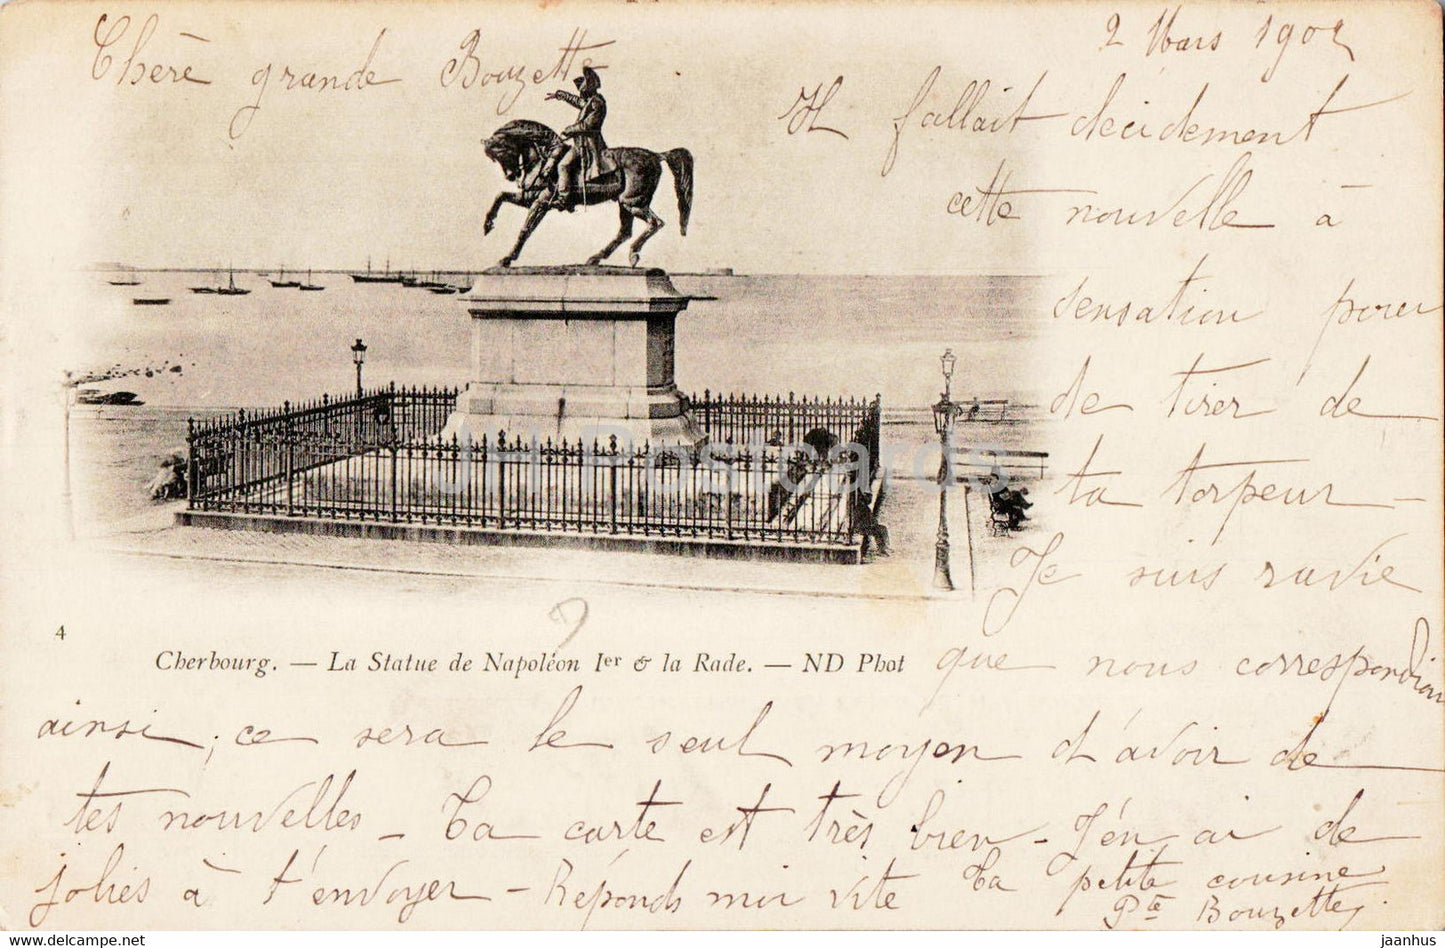 2 Mars 1902
Chère grande Bouzette
Il fallait décidement
cette nouvelle à
sensation pour
de tirer de
ta torpeur –
Je suis ravie
4
Cherbourg. — La Statue de Napoléon Ier & la Rade. — ND Phot
que nous correspondions
ainsi, ce sera le seul moyen d'avoir de
tes nouvelles – Ta carte est très bien – J'en ai de
jolies à t'envoyer – Réponds moi vite Ta petite cousine
Pte Bouzette
JH Postcards
jaanhus — https://jhpostcards.com